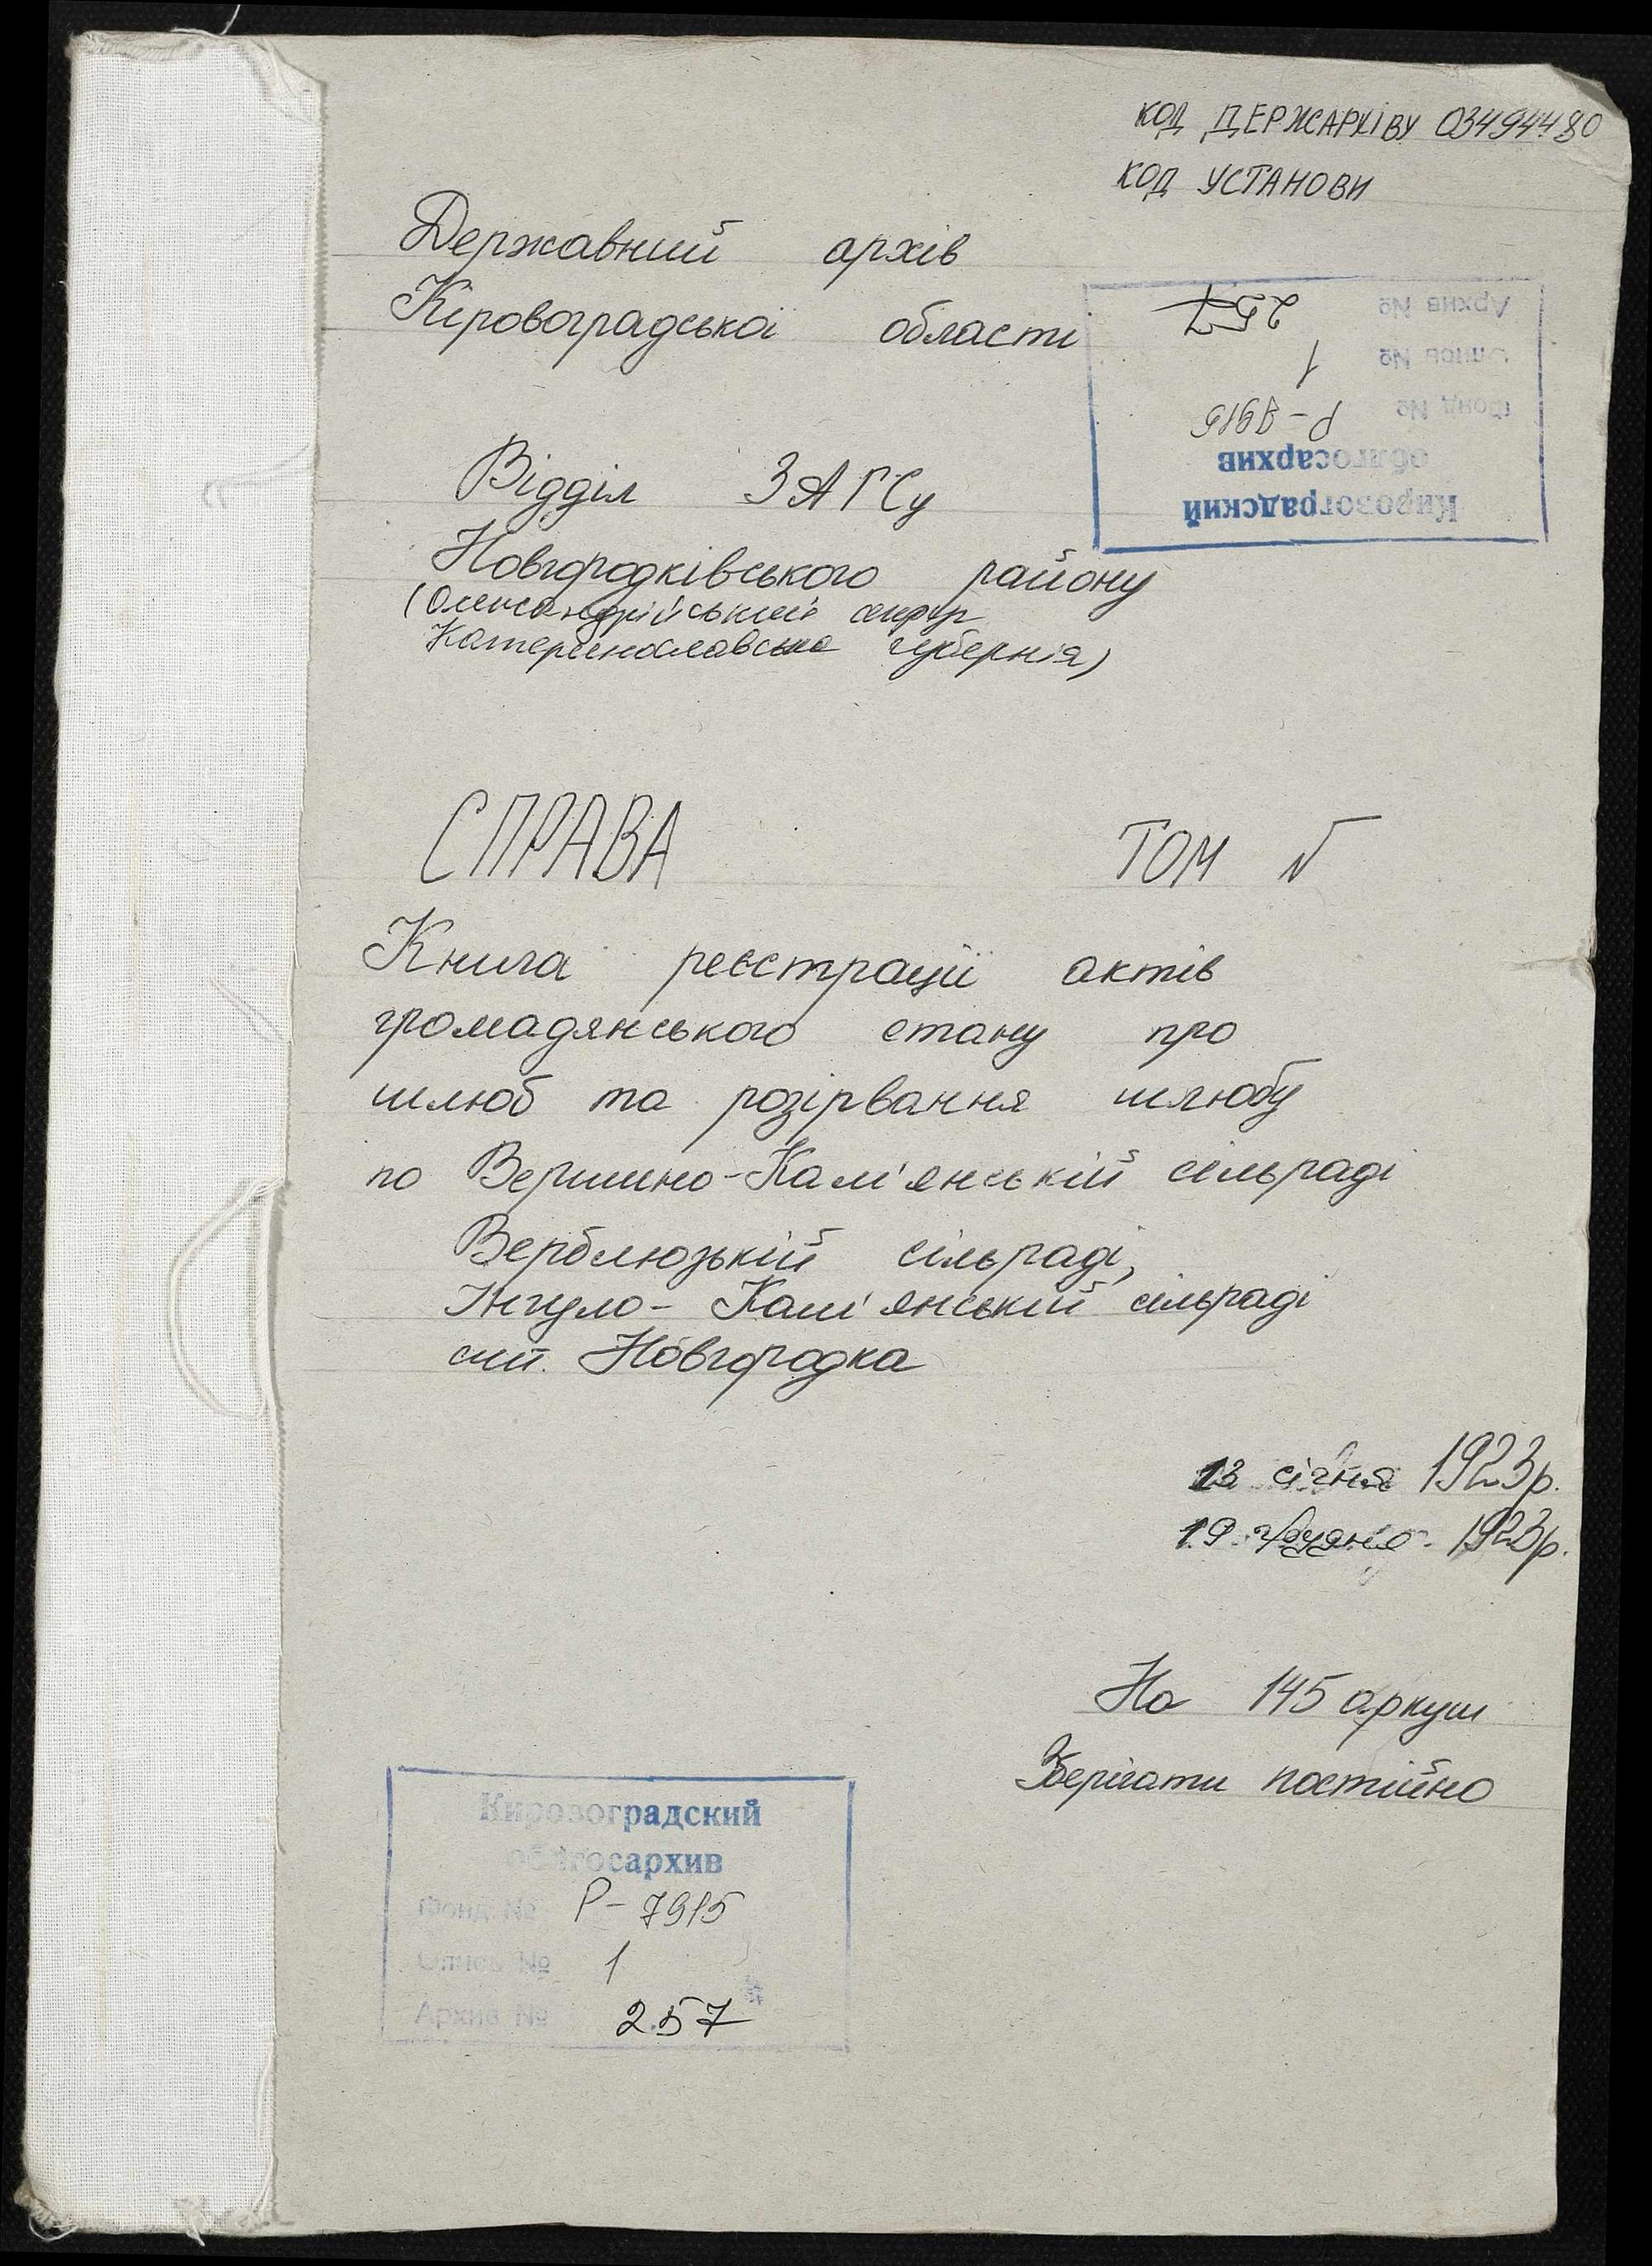 КОД ДЕРЖАРХІВУ 03494480
КОД УСТАНОВИ
Державний архів
Кіровоградської області
Архив № 257
Опись № 1
Фонд № Р-7915
облгосархив
Кировоградский
Відділ ЗАГСу
Новгородківського району
(Олександрійський округ
Катеринославська губернія)
СПРАВА ТОМ №
Книга реєстрації актів
громадянського стану про
шлюб та розірвання шлюбу
по Вершино-Кам'янській сільраді
Верблюзькій сільраді,
Інгуло-Кам'янській сільраді
смт. Новгородка
13 січня 1923р.
19 грудня 1923р.
На 145 аркуш
Зберігати постійно
Кировоградский
облгосархив
Фонд № Р-7915
Опись № 1
Архив № 257